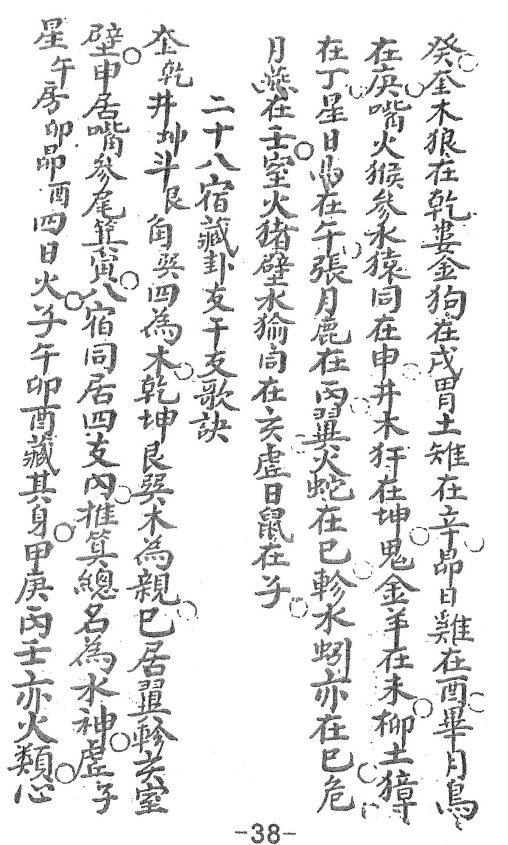 癸奎木狼在乾婁金狗在戌胃土雉在辛昴日雞在酉畢月烏
在庚嘴火猴參水猿同在申井木犴在坤鬼金羊在未柳土獐
在丁星日馬在午張月鹿在丙翼火蛇在巳軫水蚓亦在巳危
月燕在壬室火猪壁水㺄同在亥虛日鼠在子
二十八宿藏卦支干支歌訣
奎乾井坤斗艮角巽四為木乾坤艮巽木為親巳居翼軫亥室
壁申居嘴參尾箕寅八宿同居四支內推算總名為水神虛子
星午房卯昴酉四日火子午卯酉藏其身甲庚丙壬亦火類心
-38-